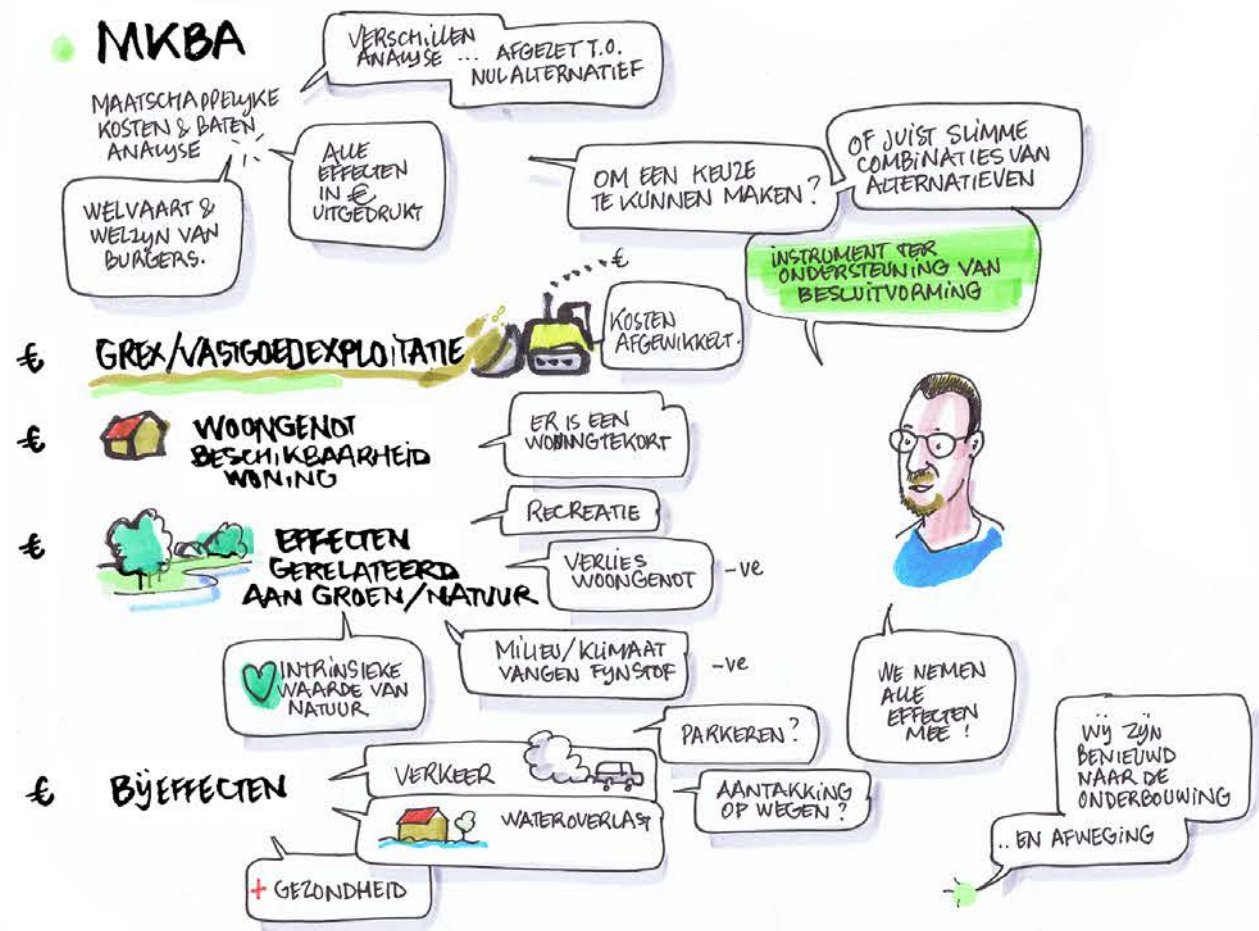 MKBA
MAATSCHAPPELIJKE
KOSTEN & BATEN
ANALYSE
VERSCHILLEN
ANALYSE ...
AFGEZET T.O.
NULALTERNATIEF
ALLE
EFFECTEN
IN €
UITGEDRUKT
WELVAART &
WELZIJN VAN
BURGERS.
OM EEN KEUZE
TE KUNNEN MAKEN?
OF JUIST SLIMME
COMBINATIES VAN
ALTERNATIEVEN
INSTRUMENT TER
ONDERSTEUNING VAN
BESLUITVORMING
€
€ GREX/VASTGOEDEXPLOITATIE
KOSTEN
AFGEWIKKELT.
€ WOONGENOT
BESCHIKBAARHEID
WONING
ER IS EEN
WONINGTEKORT
€ EFFECTEN
GERELATEERD
AAN GROEN/NATUUR
RECREATIE
VERLIES
WOONGENOT
-ve
MILIEU/KLIMAAT
VANGEN FIJNSTOF
-ve
INTRINSIEKE
WAARDE VAN
NATUUR
WE NEMEN
ALLE
EFFECTEN
MEE!
€ BIJEFFECTEN
VERKEER
PARKEREN?
AANTAKKING
OP WEGEN?
WATEROVERLAST
+ GEZONDHEID
WIJ ZIJN
BENIEUWD
NAAR DE
ONDERBOUWING
.. EN AFWEGING